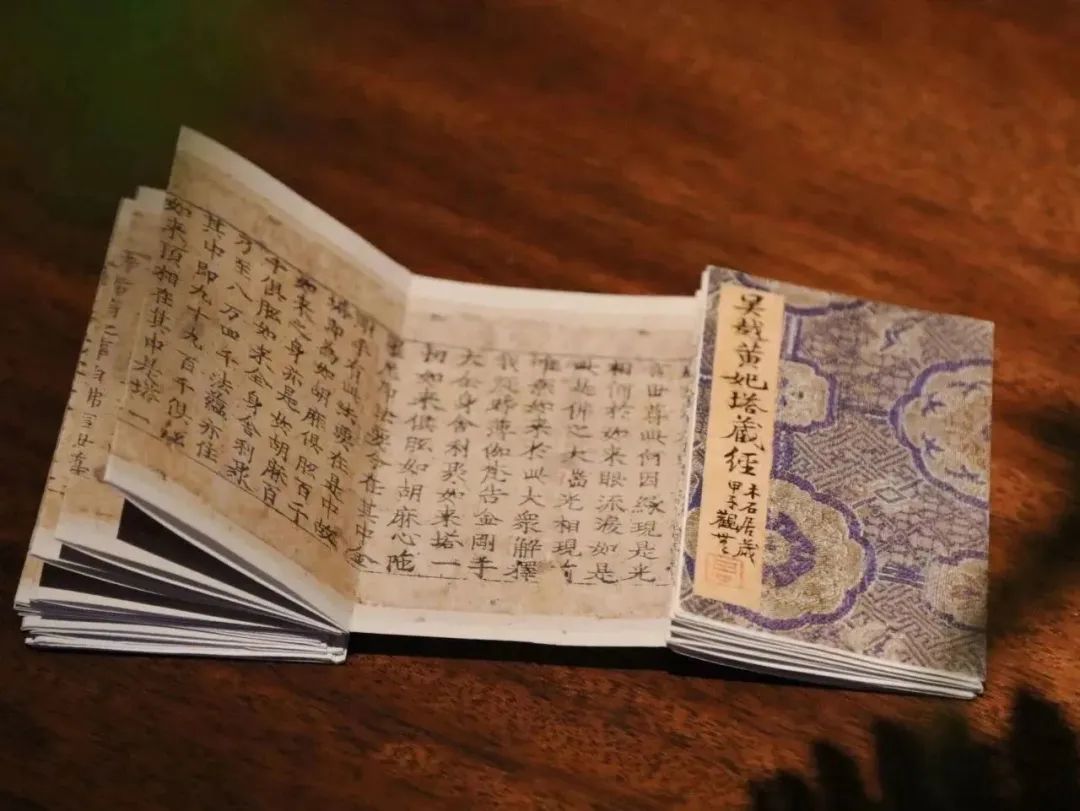 吳越黃妃塔藏經
木石居藏
甲子觀
言世尊此何因緣現是光
相何於如來眼流淚如是
此諸佛之大瑞光相現前
唯願如來於此大眾解釋
我疑時薄伽梵告金剛手
大全身舍利聚如來塔一
切如來俱胝如胡麻心陁
羅尼印法要今在其中金
剛手有此法要在是中故
塔即為如胡麻俱胝百千
如來之身亦是如胡麻百
千俱胝如來全身舍利聚
乃至八万四千法蘊亦住
其中即九十九百千俱胝
如來頂相在其中是塔一